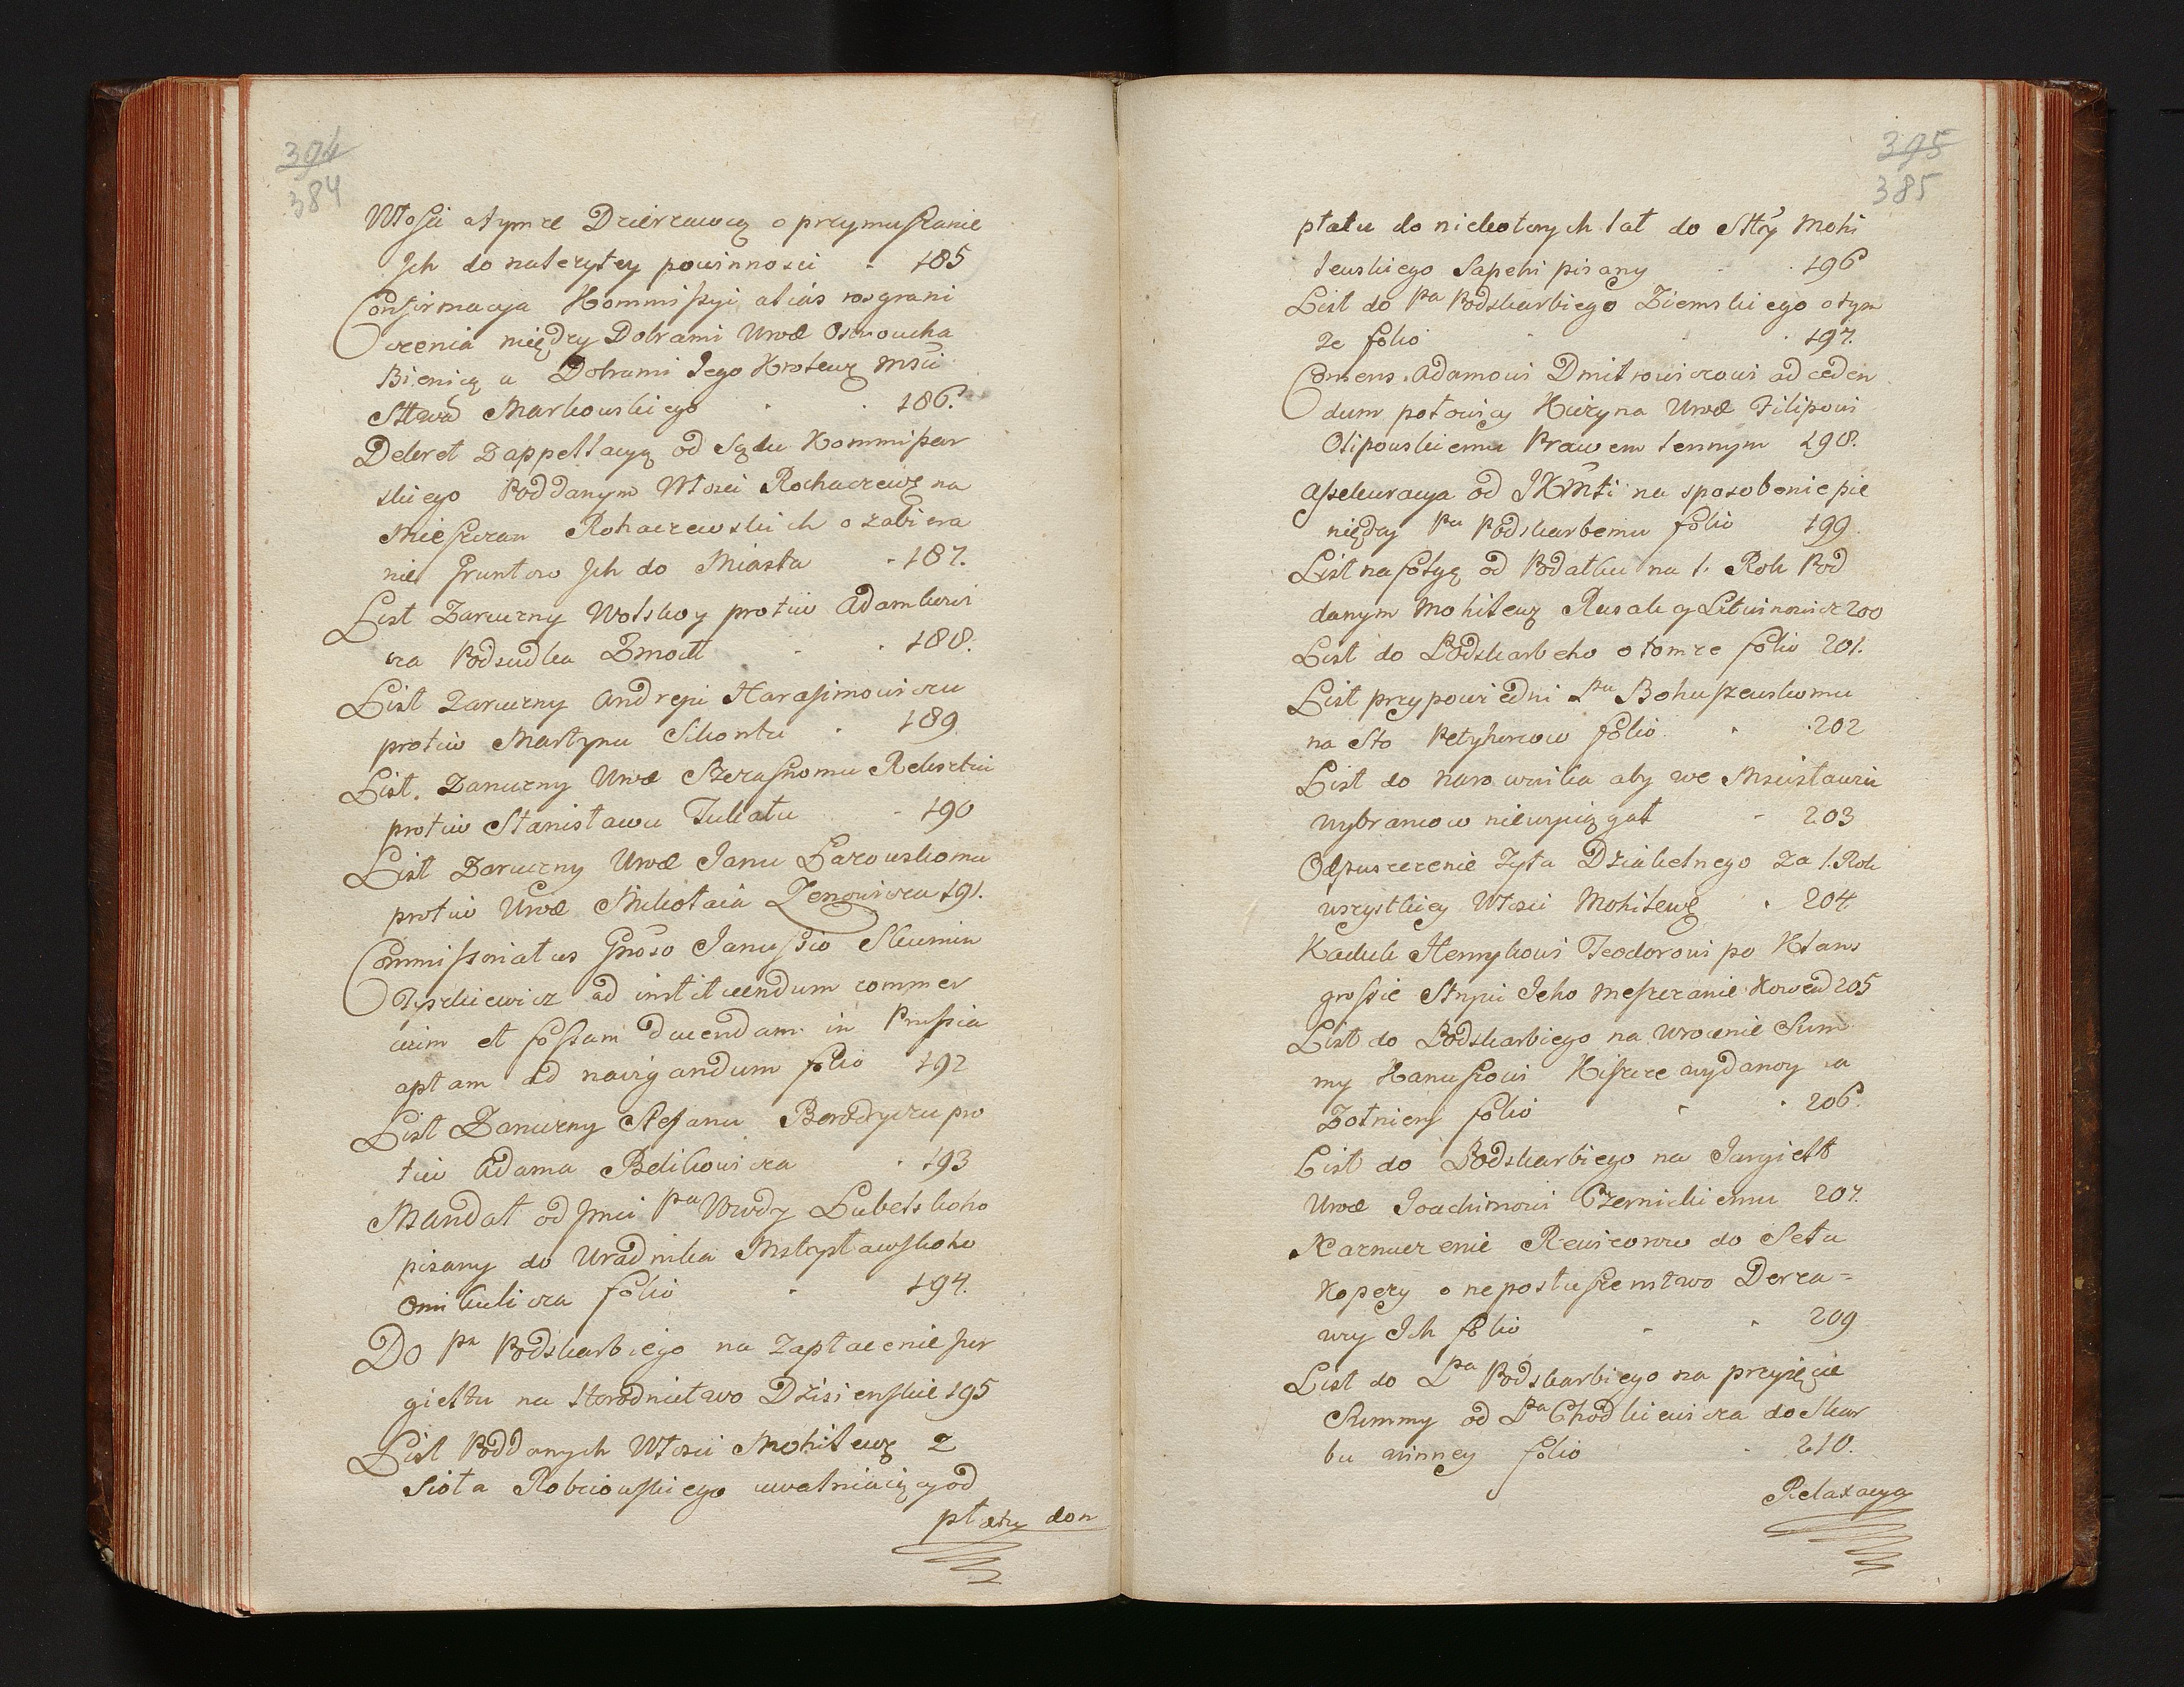 394
384
Włosci otymże Dzierzawcą o przymuszanie
Ich do należytey powinnosci - 185
Confirmacya Kommissyi, aliás rozgrani
czenia między Dobrami Urod
Bienicą a Dobrami Jego Krolewę Msći
Sttwa Markowskiego 186.
Dekret Zappellacyą od Sądu Kommissar
skiego Poddanym Włosci Rochaczewę na
Mieszczan Rohaczewskich o zabiera
nie Gruntow Jch do Miasta - 187.
List Zaruczny Wolskoy protiw Adamkowi
cza Podsudka Zmoit 188.
List Zaruczny Andreju Harasimowiczu
protiw Martynu 189.
List. Zaruczny Urod
protiw Stanisławu - 190
List Zaruczny Urod Janu Łazowskomu
protiw Urod Mikołaia Zenowicza 191.
Commissoriatus Gnoso Janussio Skumin
Tyszkiewicz ad instituendum commer
cium et fossam ducendam in Prussia
aptam ad navigandum folio 192
List Zaruczny Stefanu pro
tiw Adama Belikowicza 193
Mandat od Jmci Pa Wwdy Lubelskoho
pisany do Uradnika Mstysławskoho
Omikulicza folio 194.
Do Pa Podskarbiego na Zapłacenie Jur
gieltu na Horodnictwo Dzisienskie 195
List Poddanych Włosci Mohilewę z
Sioła uwalniaiący od
płatu don
395
385
płatu do niektorych lat do Sttỹ Mohi
lewskiego Sapehi pisany 196
List do Pa Podskarbiego Ziemskiego otym
że folio 197.
Consens Adamowi Dmitrowiczowi ad ceden
dum połowicy Urod Filipowi
Osipowskiemu Prawem lennym 198.
Assekuracya od JKMsti na sposobenie pie
niędzy Pu Podskarbemu folio 199
List na folgę od Podatku na 1. Rok Pod
danym Mohilewę 200
List do Podskarbeho o tomże folio 201.
List przypowiedni Pu Bohuszewskomu
na Sto Petyhorcow folio 202
List do aby we Mscisławiu
wybrancow niewyciągał - 203
Odpuszczenie Żyta Dziakelnego za 1. Rok
wszystkiey Włosci Mohilewę 204.
Kaduk Henrykowi Teodorowi po
Jeho 205
List do Podskarbiego na wrocenie Sum
my Hanuszowi wydaney na
Żołnierz folio 206.
List do Podskarbiego na Jurgielt
Urod Joachimowi Czernickiemu 207.
Rewizorow do Seła
Kopezy o neposłuszenstwo Derża=
wcy Ich folio 209
List do Pa Podskarbiego na przyięcie
Summy od Pa Chodkiewicza do Skar
bu winney folio 210.
Relaxacya